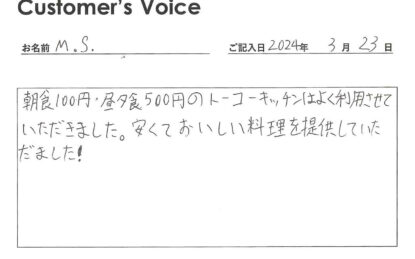 Customer's Voice
お名前 M.S. ご記入日 2024年 3月 23日
朝食100円・昼夕食500円のトーコーキッチンはよく利用させて
いただきました。安くておいしい料理を提供していた
だました!